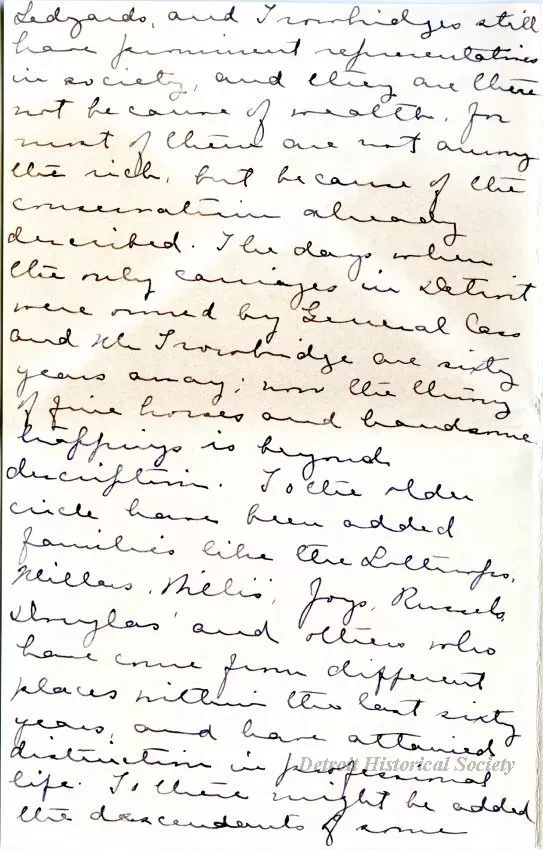 Ledyards, and Trowbridges still
have prominent representatives
in society, and they are there
not because of wealth, for
most of them are not among
the rich, but because of the
conservatism already
described. The days when
the only carriages in Detroit
were owned by General Cass
and Mr Trowbridge are sixty
years away; now the throng
of fine horses and handsome
trappings is beyond
description. To the older
circle have been added
families like the Lothrops,
Millers, Willis', Joys, Russels,
Douglas' and others who
have come from different
places within the last sixty
years, and have attained
distinction in professional
life. To these might be added
the descendants of some
Detroit Historical Society